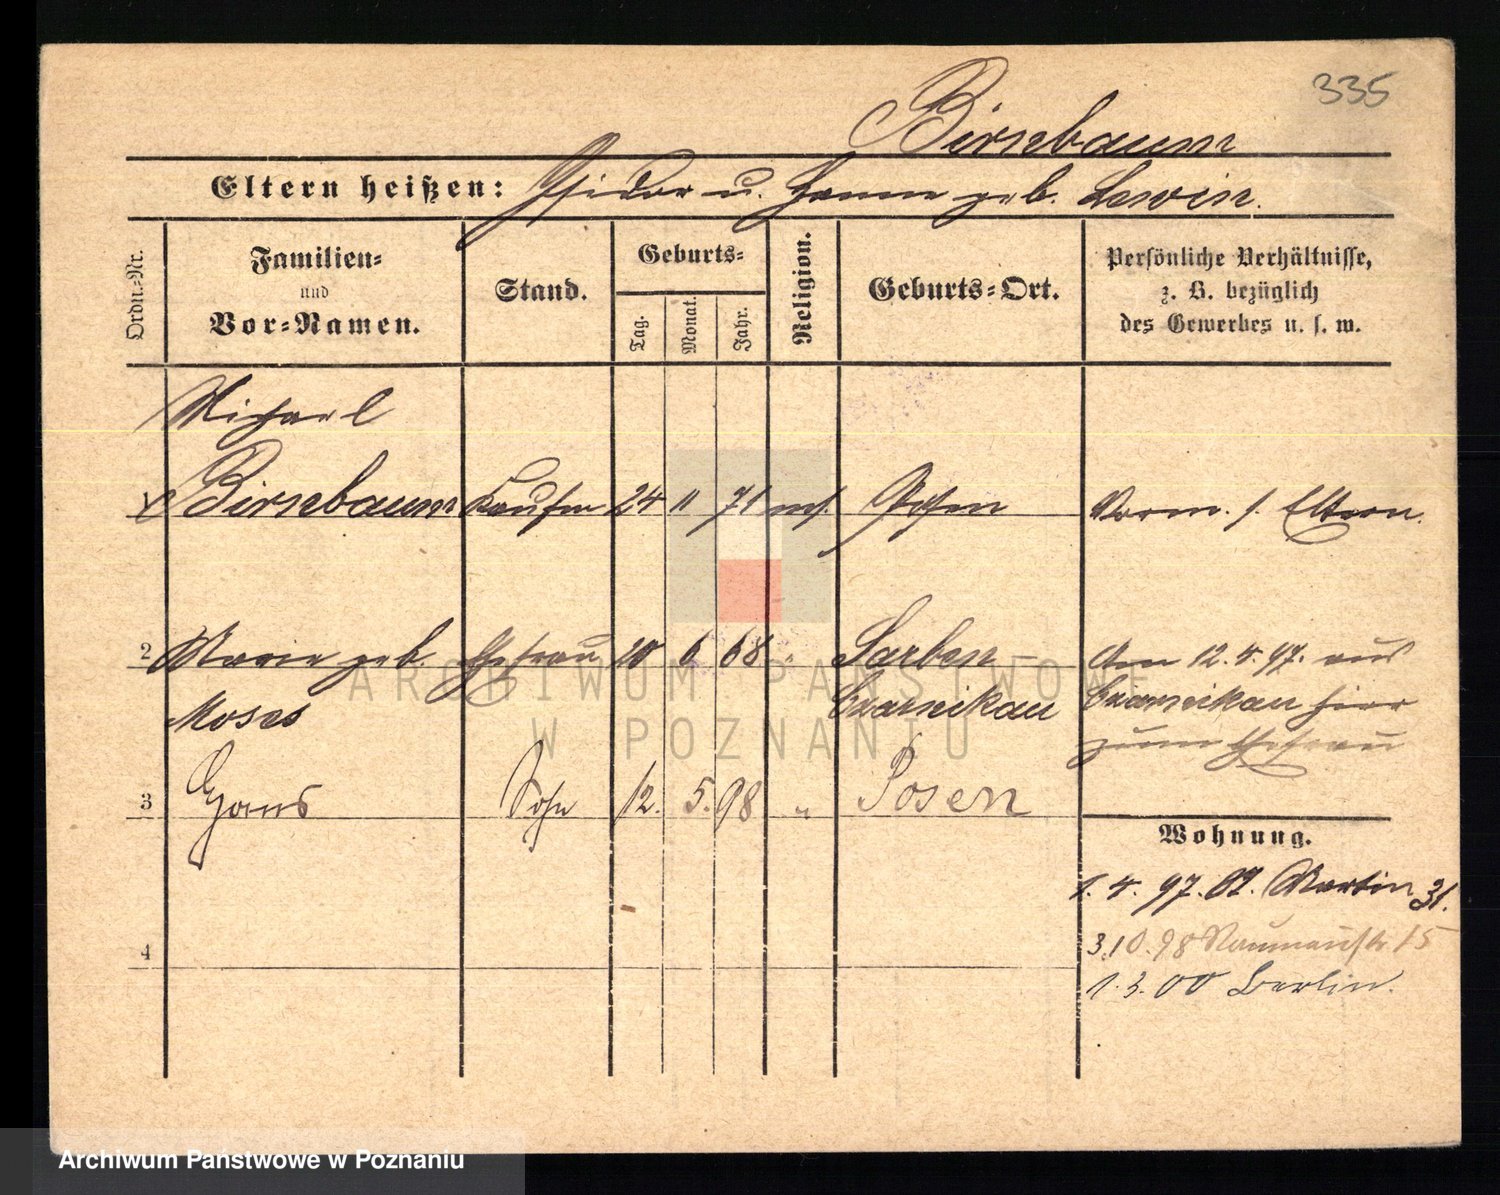 335
Birnbaum
Eltern heißen: Isidor u. Hanne geb. Lewin.
Ordn.=Nr.
Familien=
und
Vor=Namen.
Stand.
Geburts=
Tag.
Monat.
Jahr.
Religion.
Geburts=Ort.
Persönliche Verhältnisse,
z. B. bezüglich
des Gewerbes u. s. w.
Michael
1 Birnbaum Kaufm 24 11 71 mos. Posen Vorm. s. Eltern.
2 Marie geb. Ehefrau 20 6 68 " Sarben
Moses Czarnikau
Am 12.4.97. aus
Czarnikau hier
zum Ehefrau
3 Hans Sohn 12. 5. 98 " Posen
Wohnung.
1. 4. 97. Martin 31.
3.10.98 Naumannstr. 15
4
1.3.00 Berlin.
ARCHIWUM PAŃSTWOWE
W POZNANIU
Archiwum Państwowe w Poznaniu